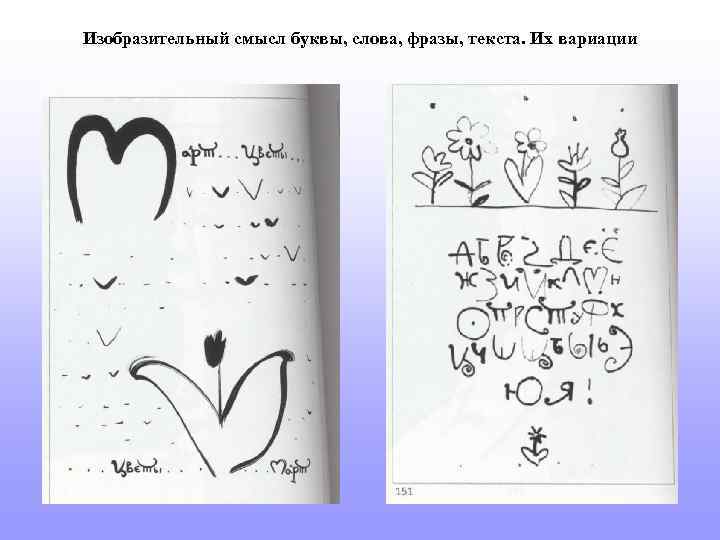 Изобразительный смысл буквы, слова, фразы, текста. Их вариации
Март... Цветы...
Цветы
Март
А Б В Г Д Е Ё
Ж З И Й К Л М Н
О П Р С Т У Ф Х
Ц Ч Ш Щ Ъ Ы Ь Э
Ю Я !
151